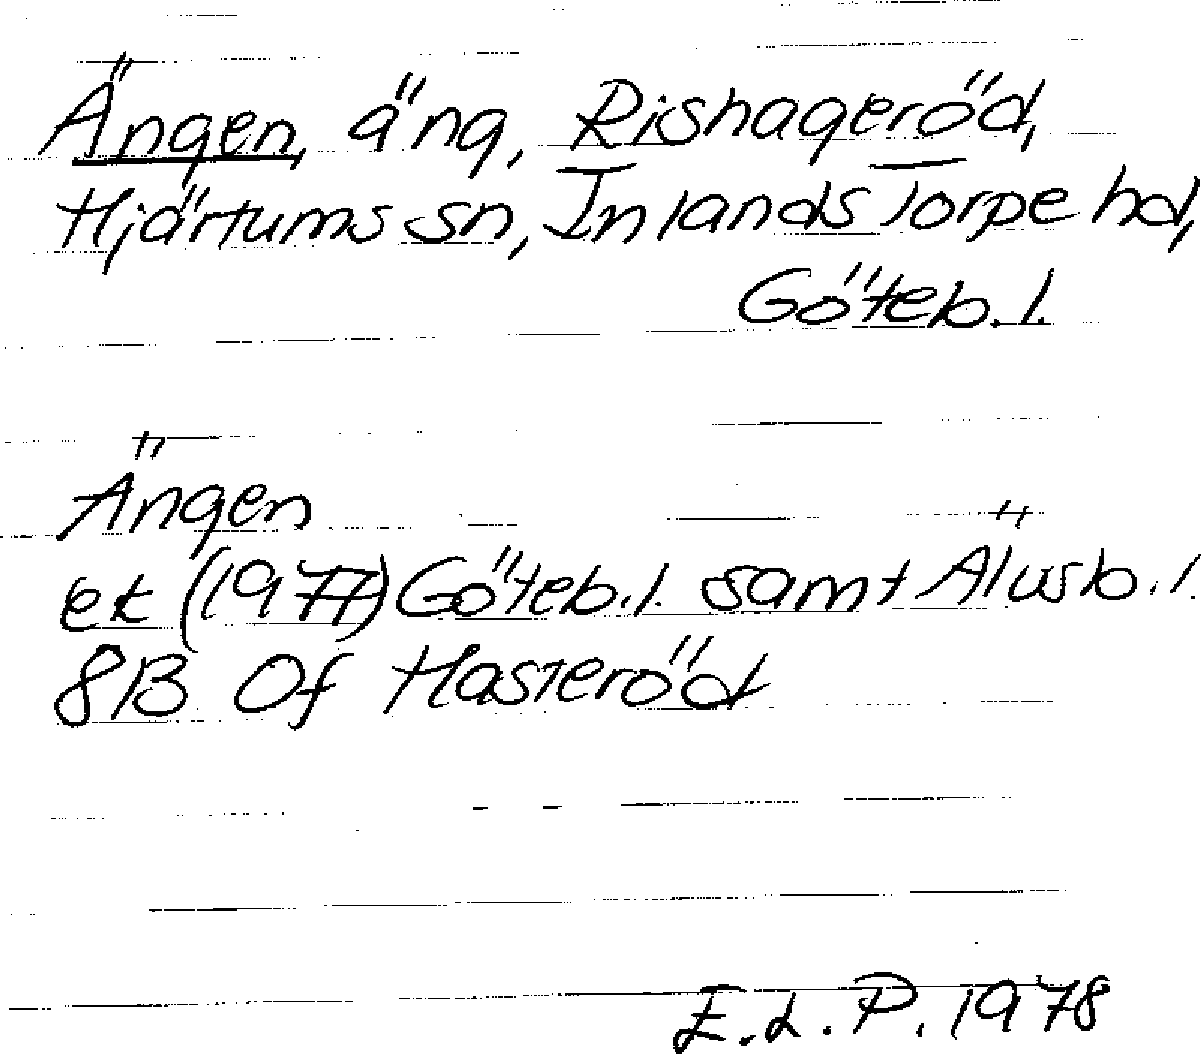 Ängen, äng, Rishageröd,
Hjärtums sn, Inlands Torpe hd,
Göteb. l.
Ängen
ek (1977) Göteb. l. samt Älvsb. l.
8B 0f Hasteröd
E.L.P. 1978